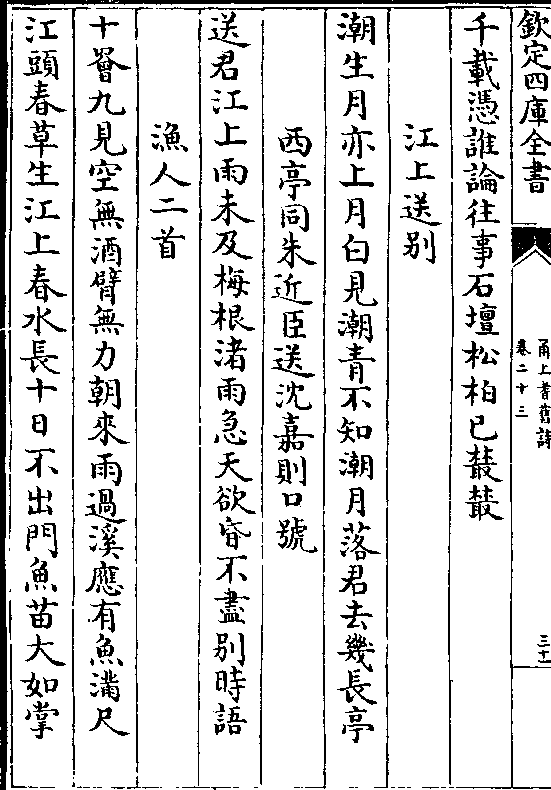 欽定四庫全書
甬上耆舊詩
卷二十三
三十一
千載憑誰論往事石壇松柏已䕺䕺
江上送别
潮生月亦上月白見潮青不知潮月落君去幾長亭
西亭同朱近臣送沈嘉則口號
送君江上雨未及梅根渚雨急天欲昏不盡别時語
漁人二首
十罾九見空無酒臂無力朝來雨過溪應有魚滿尺
江頭春草生江上春水長十日不出門魚苗大如掌